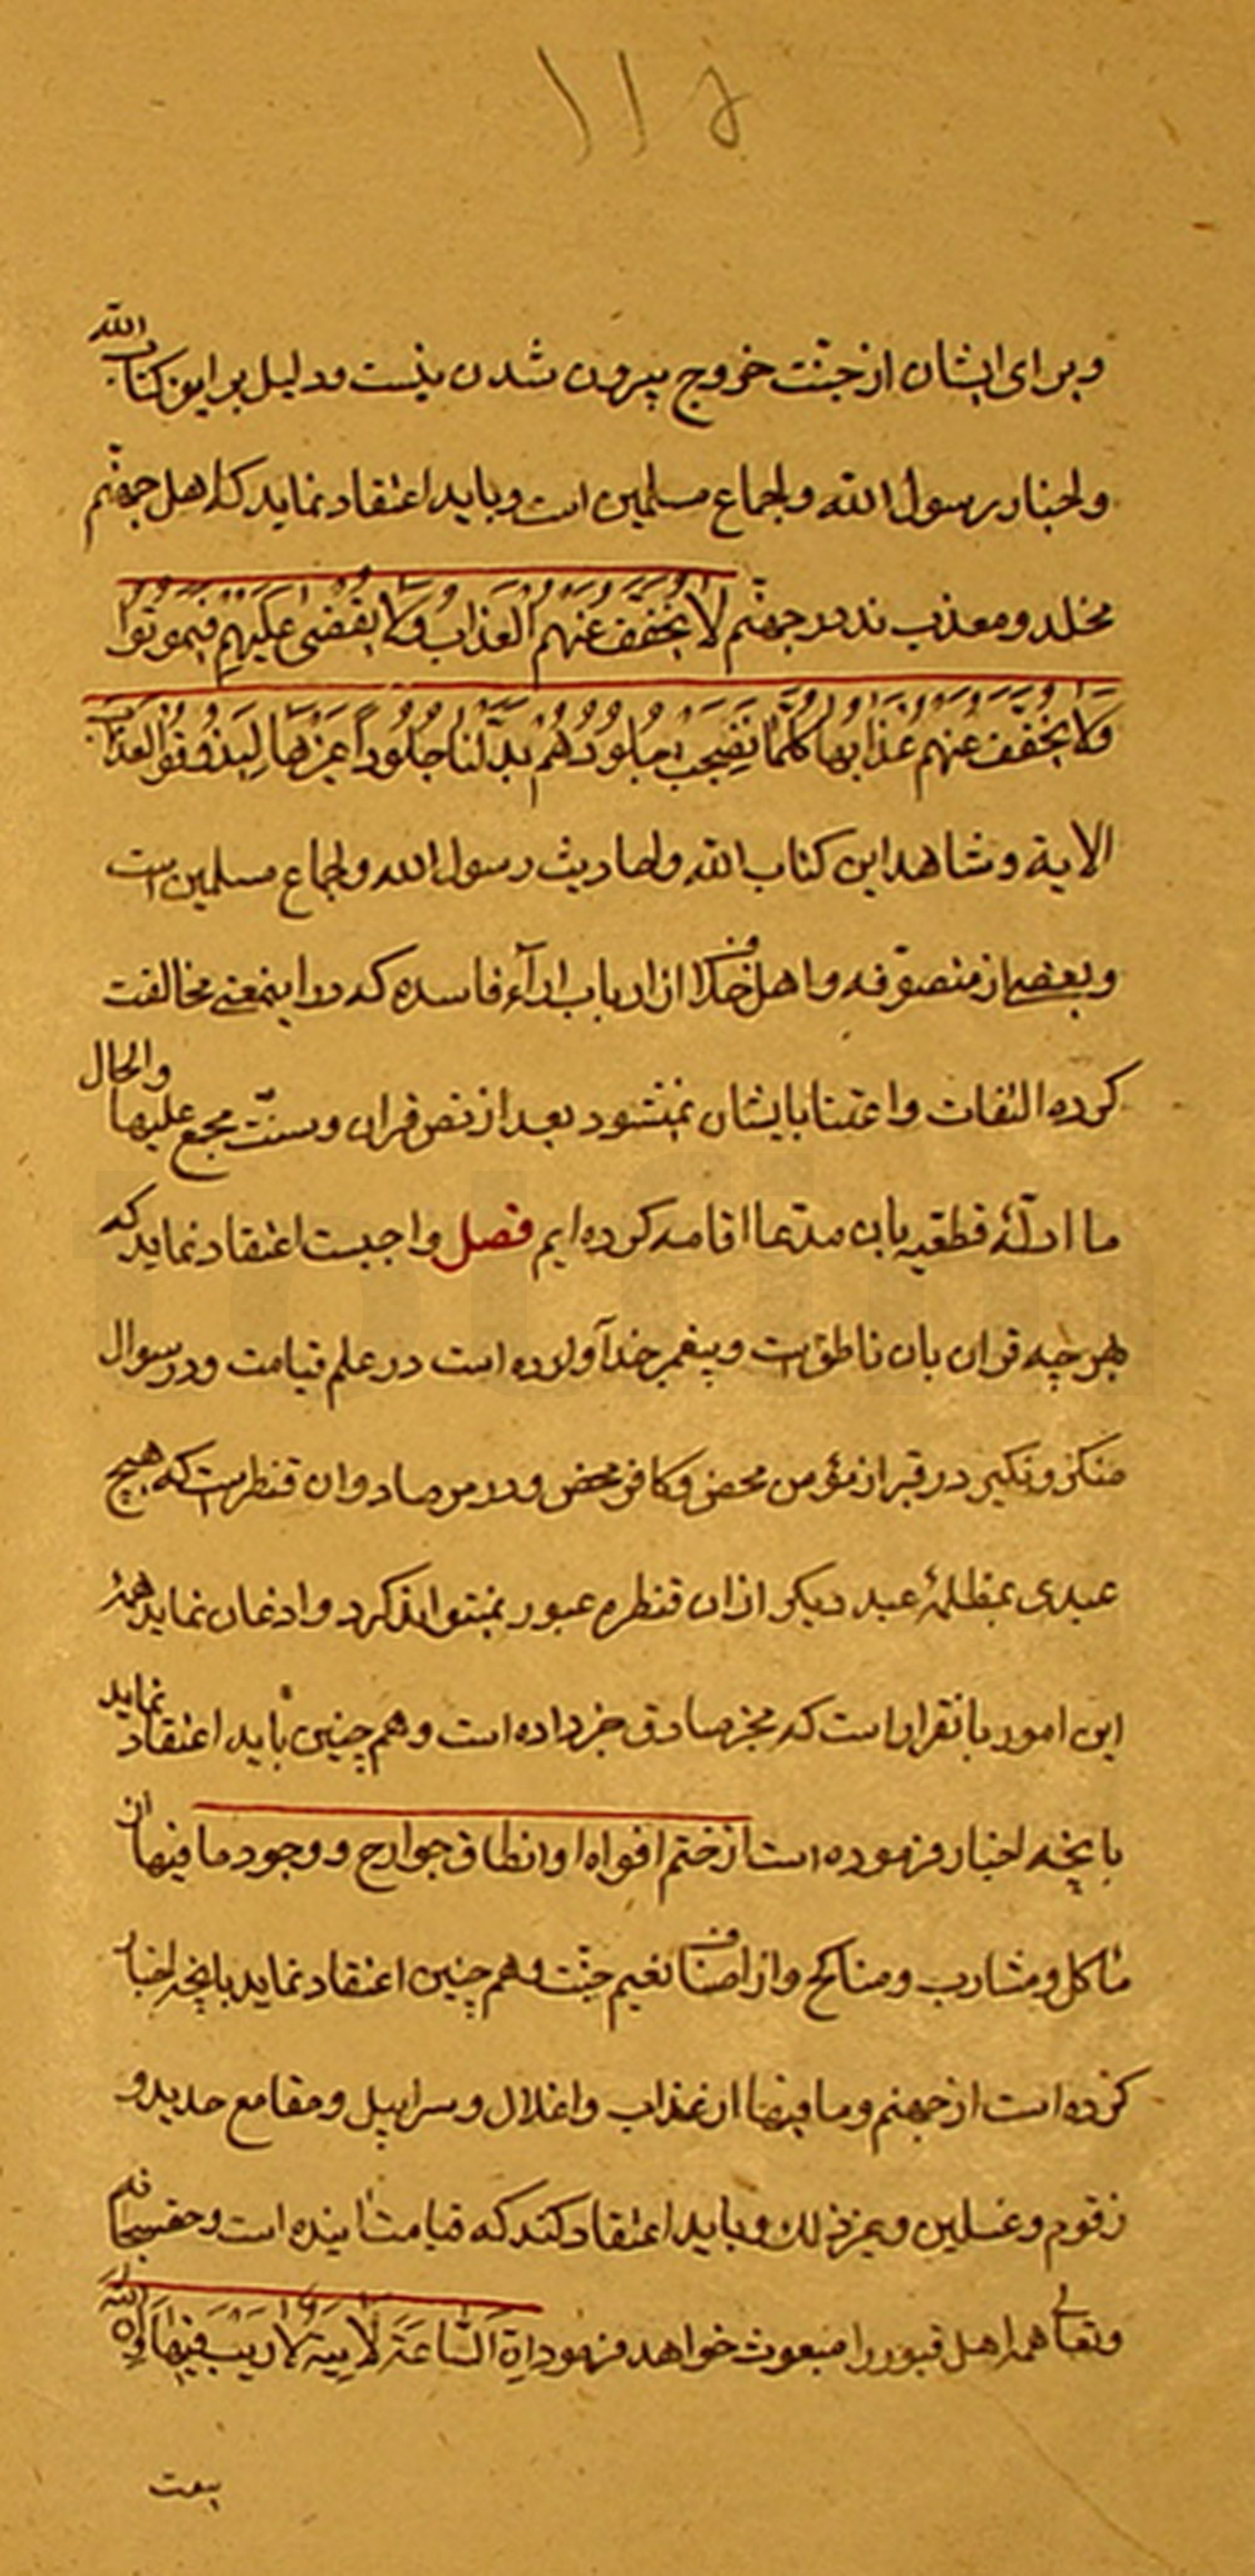 ١١٥
وبرای ایشان از جنّت خروج بیرون شدن نیست ودلیل براین کتاب الله
واخبار رسول الله واجماع مسلمین است وباید اعتقاد نماید که اهل جهنّم
مخلد ومعذب ند در جهنّم لَا یُخَفَّفُ عَنْهُمُ الْعَذَابُ وَلَا یُقْضٰی عَلَیْهِمْ فَیَمُوتُوا
وَلَا یُخَفَّفُ عَنْهُمْ عَذَابِهَا کُلَّمَا نَضِجَتْ جُلُودُهُمْ بَدَّلْنَا جُلُوداً غَیْرَهَا لِیَذُوقُوا الْعَذَابَ
الایة وشاهد این کتاب الله واحادیث رسول الله واجماع مسلمین است
وبعضی از متصوّفه واهل خلاف از ارباب ارآء فاسده که در اینمعنی مخالفت
کرده التفات واعتنا بایشان نمیشود بعد از نص قران وسنّت مجمع علیها والحال
ما ادلّهٔ قطعیّه بان مدّعا اقامه کرده ایم فصل واجبست اعتقاد نماید که
هرچه قران بان ناطق است وپیغمبر خدا آورده است در علم قیامت ودر سوال
منکر ونکیر در قبر از مؤمن محض وکافر محض ودر مرصاد وان قنطر است که هیچ
عبدی بمظلمهٔ عبد دیکر ازان قنطره عبور نمیتواند کرد واذعان نماید همهٔ
این امور بانقرار است که مخبر صادق خبر داده است وهم چنین باید اعتقاد نماید
بانچه اخبار فرموده است از ختم افواه او انطاق جوارح ووجود ما فیها از
مٰاکل ومشارب ومناکح واز اصناف نعیم جنّت وهم چنین اعتقاد نماید بانچه اخبار
کرده است از جهنم وما فیها از عذاب واغلال وسرابیل ومقامع حدید و
زقوم وغسلین وغیر ذلك وباید اعتقاد کند که قیامت اینده است وحقسبحانه
وتعالی همه اهل قبور را مبعوث خواهد فرمود اِنَّ السَّاعَةَ لَاٰتِیَةٌ لَا رَیْبَ فِیهَا وَاِنَّ اللّٰهَ
یبعث